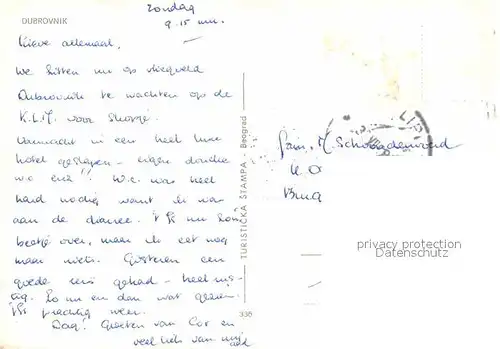 DUBROVNIK
Zondag
9.15 uur.
Lieve allemaal,
We zitten nu op vliegveld
Dubrovnik te wachten op de
K.L.M. voor Skopje.
Vannacht in een heel luxe
hotel geslapen - eigen douche
w.c. enz!! W.c. was heel
hard nodig want ik was
aan de diarree. 't Is nu zo'n
beetje over, maar ik eet nog
maar niets. Gisteren een
goede reis gehad - heel rus-
tig. Zo nu en dan wat gezien.
't Is prachtig weer.
Dag! Groeten van Cor en
veel liefs van mij
TURISTIČKA ŠTAMPA - Beograd
336
Fam. M. Schoagdenwerd
privacy protection
Datenschutz